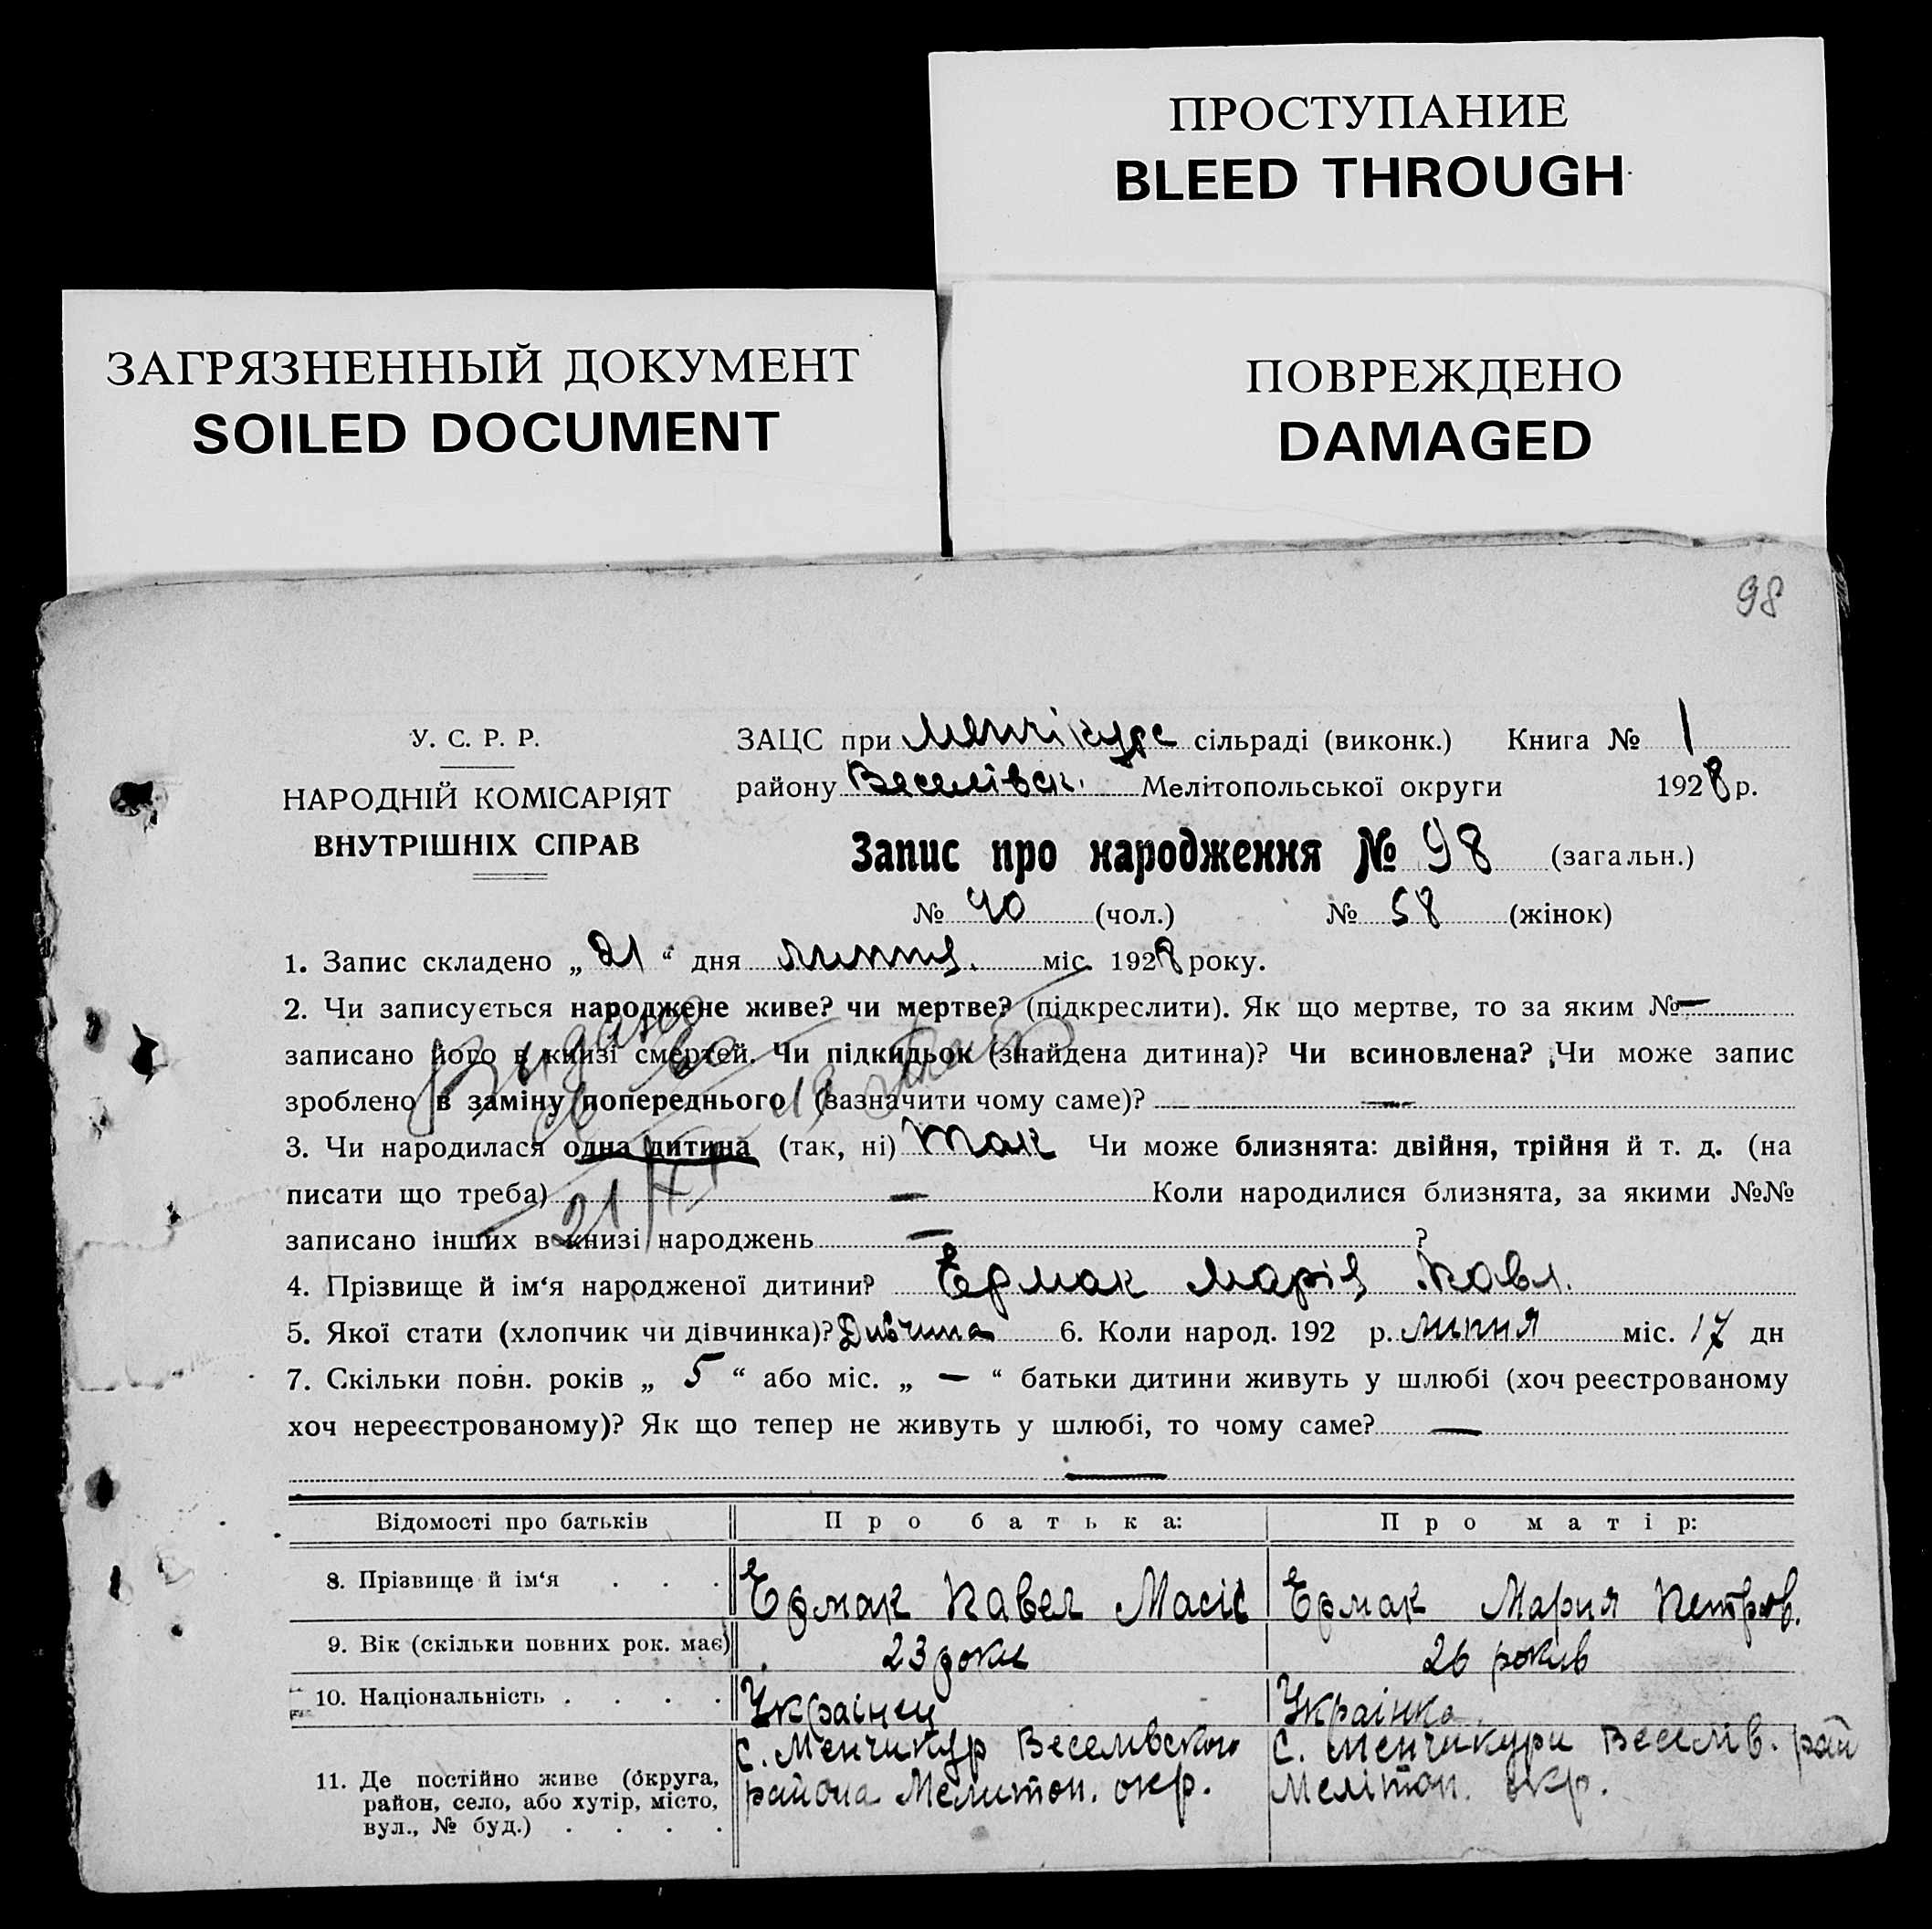 ПРОСТУПАНИЕ
BLEED THROUGH
ЗАГРЯЗНЕННЫЙ ДОКУМЕНТ
SOILED DOCUMENT
ПОВРЕЖДЕНО
DAMAGED
98
У. С. Р. Р.
НАРОДНІЙ КОМІСАРІЯТ
ВНУТРІШНІХ СПРАВ
ЗАЦС при Менчікурс сільраді (виконк.) Книга № 1
району Веселівск. Мелітопольської округи 1928 р.
Запис про народження № 98 (загальн.)
№ 40 (чол.) № 58 (жінок)
1. Запис складено „ 21 “ дня липня міс. 1928 року.
2. Чи записується народжене живе? чи мертве? (підкреслити). Як що мертве, то за яким № —
записано його в книзі смертей. Чи підкидьок (знайдена дитина)? Чи всиновлена? Чи може запис
зроблено в заміну попереднього (зазначити чому саме)? —
3. Чи народилася одна дитина (так, ні) Так Чи може близнята: двійня, трійня й т. д. (на
писати що треба) — Коли народилися близнята, за якими №№
записано інших в книзі народжень — ?
4. Прізвище й ім‘я народженої дитини? Ермак Марія Павл.
5. Якої стати (хлопчик чи дівчинка)? Дивчина 6. Коли народ. 192 р. липня міс. 17 дн
7. Скільки повн. років „ 5 “ або міс. „ — “ батьки дитини живуть у шлюбі (хоч реєстрованому
хоч нереєстрованому)? Як що тепер не живуть у шлюбі, то чому саме? —
—
Видано
21/XI
Відомості про батьків Про батька: Про матір:
8. Прізвище й ім‘я . . . Ермак Павел Ермак Мария Петров.
9. Вік (скільки повних рок. має) 23 роки 26 рокив
10. Національність . . . . Украінец Украінка
11. Де постійно живе (округа, район, село, або хутір, місто, вул., № буд.) . . . .
с. Менчикур Веселивского
района Мелитоп. окр.
с. Менчикури Веселів. рай
Мелітоп. окр.